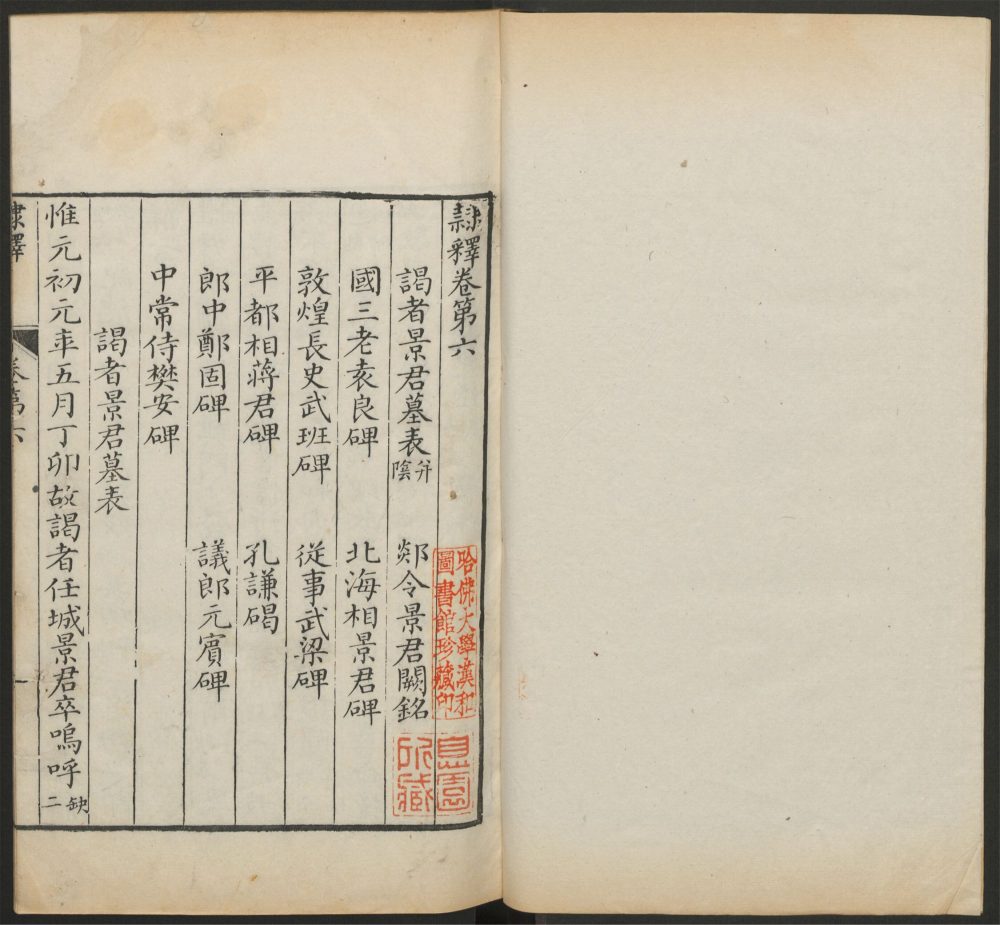 隸釋卷第六
謁者景君墓表并陰　郯令景君闕銘
國三老袁良碑　北海相景君碑
敦煌長史武班碑　從事武梁碑
平都相蔣君碑　孔謙碣
郎中鄭固碑　議郎元賓碑
中常侍樊安碑
謁者景君墓表
惟元初元年五月丁卯故謁者任城景君卒嗚呼缺二
隸釋　卷第六　一
哈佛大學漢和
圖書館珍藏印
息園
所藏